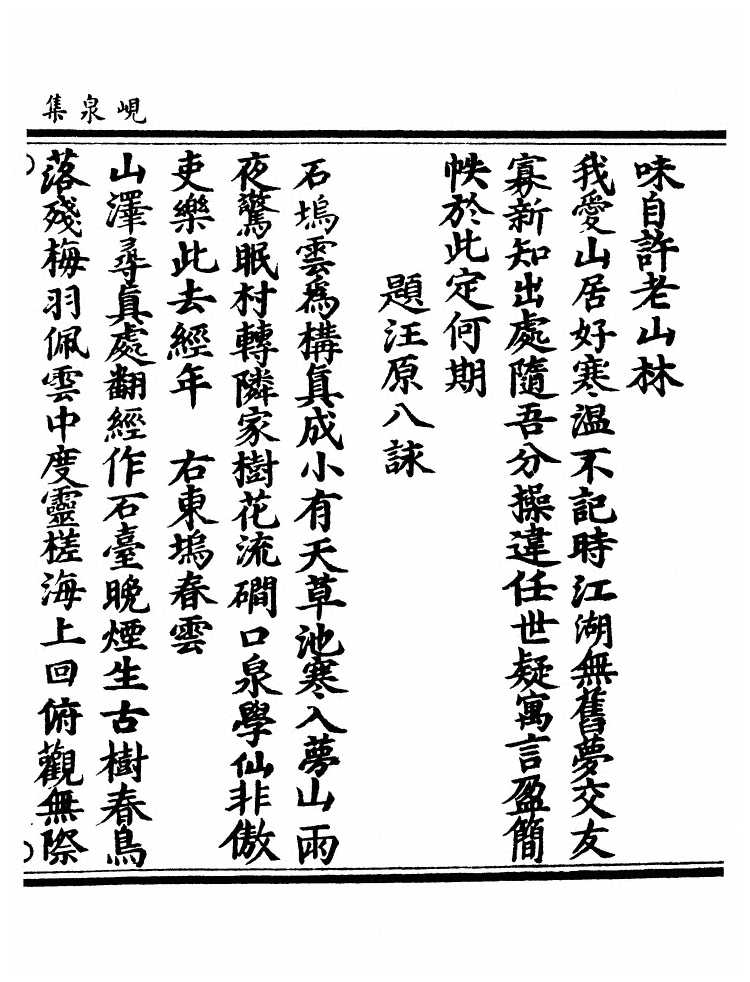 峴泉集
味自許老山林
我愛山居好寒溫不記時江湖無舊夢交友
寡新知出處隨吾分操違任世疑寓言盈簡
帙於此定何期
題汪原八詠
石塢雲為構真成小有天草池寒入夢山雨
夜驚眠村轉隣家樹花流磵口泉學仙非傲
吏樂此去經年　右東塢春雲
山澤尋真處翻經作石臺晚煙生古樹春鳥
落殘梅羽佩雲中度靈槎海上回俯觀無際